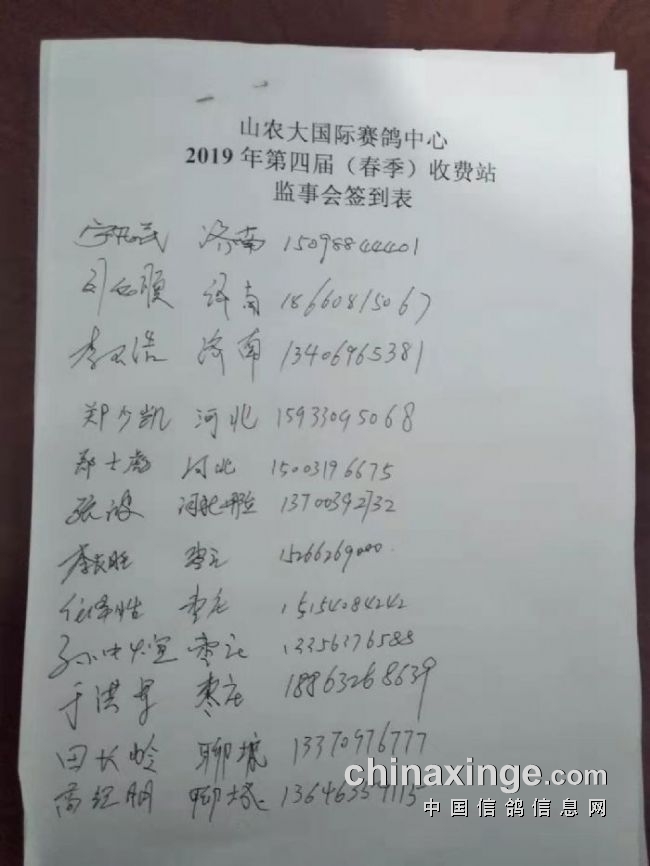 山农大国际赛鸽中心
2019年第四届（春季）收费站
监事会签到表
济南 15098844401
济南 18660815067
李 浩 济南 13406965381
郑少凯 河北 15933095068
郑士彪 河北 15003196675
张波 河北邢台 13700392732
李长旺 枣庄 15266269000.
任泽胜 枣庄 15154084242
孙中煊 枣庄 13356376588
于洪军 枣庄 18863268639
田长岭 聊城 13370976777
高纪明 聊城 13646357115
chinaxinge.com
中国信鸽信息网